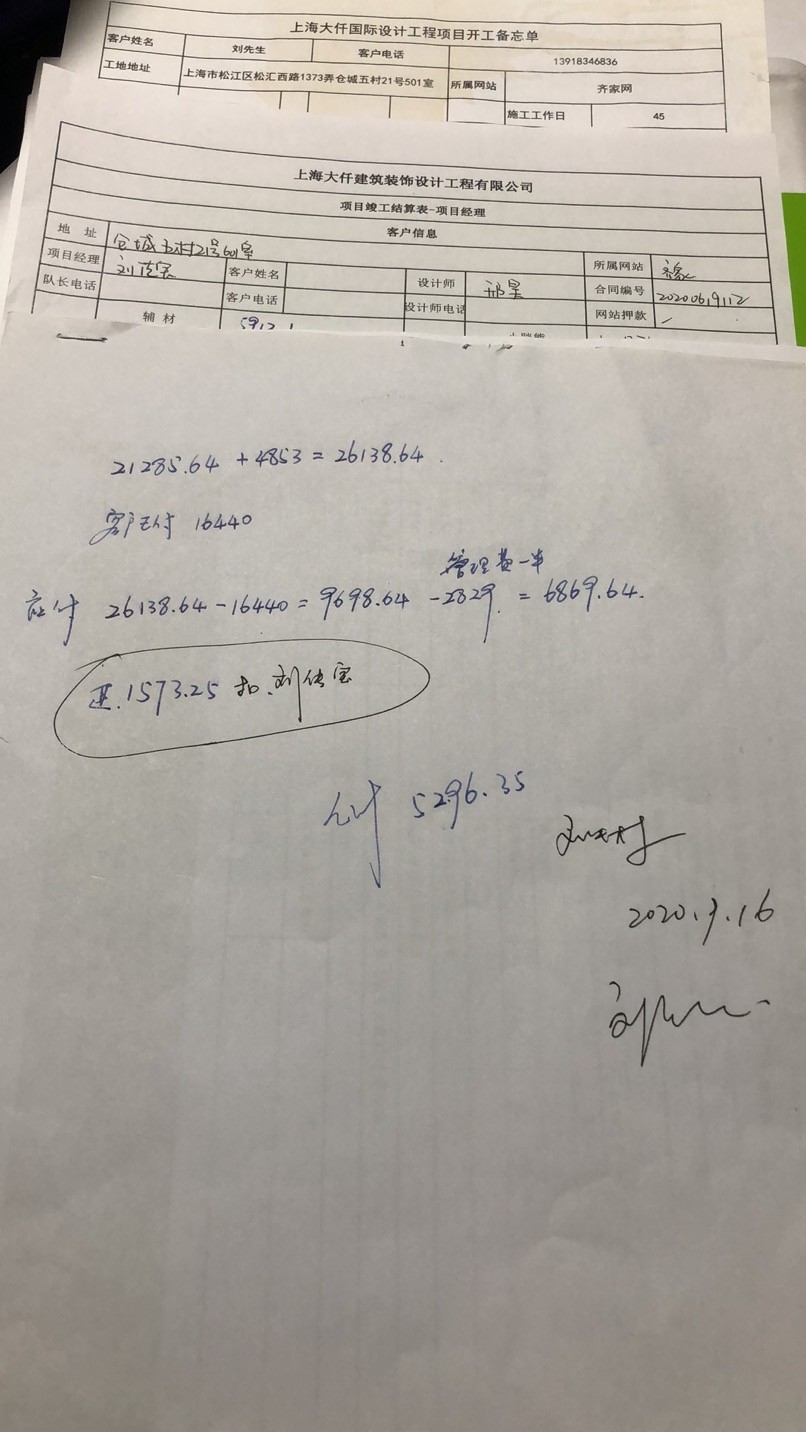 上海大仟国际设计工程项目开工备忘单
客户姓名 刘先生 客户电话 13918346836
工地地址 上海市松江区松汇西路1373弄仓城五村21号501室 所属网站 齐家网
施工工作日 45
上海大仟建筑装饰设计工程有限公司
项目竣工结算表-项目经理
客户信息
地 址 仓城五村21号601室 所属网站 齐家
项目经理 客户姓名 设计师 合同编号 20200619112
队长电话 客户电话 设计师电话 网站押款
辅 材
1
21285.64 + 4853 = 26138.64
客户已付 16440
管理费一半
应付 26138.64 - 16440 = 9698.64 - 2829 = 6869.64.
1573.25 扣
5296.35
2020.9.16